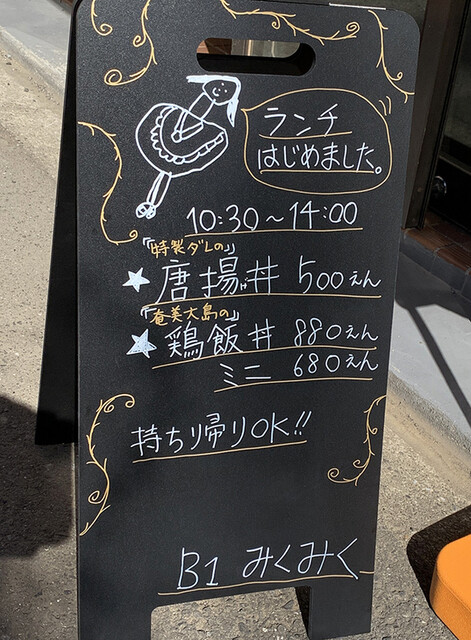 ランチ
はじめました。
10:30～14:00
「特製ダレの」
★唐揚丼 500えん
「奄美大島の」
★鶏飯丼 880えん
ミニ 680えん
持ち帰りOK!!
B1 みくみく